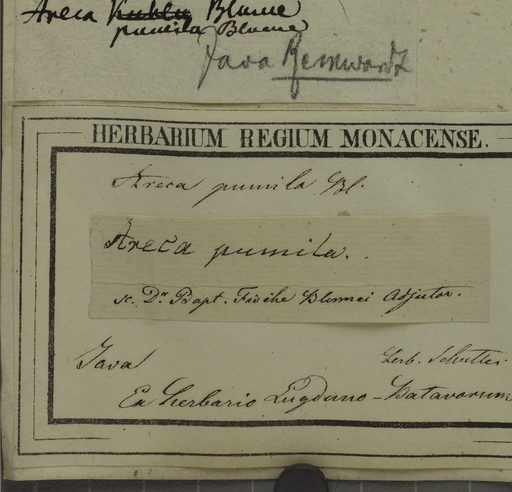 Areca Kuhlii Blume
pumila Blume
Java Reinwardt
HERBARIUM REGIUM MONACENSE.
Areca pumila Bl.
Areca pumila.
sc. Dr Bapt. Fische Blumei Adjutor.
Java
herb. Schultes.
Ex herbario Lugduno-Batavorum